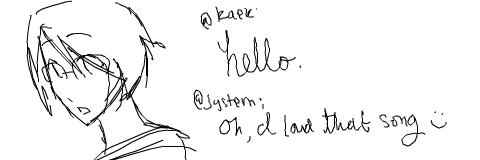 @kaek:
hello.
@system;
Oh, I love that song :)